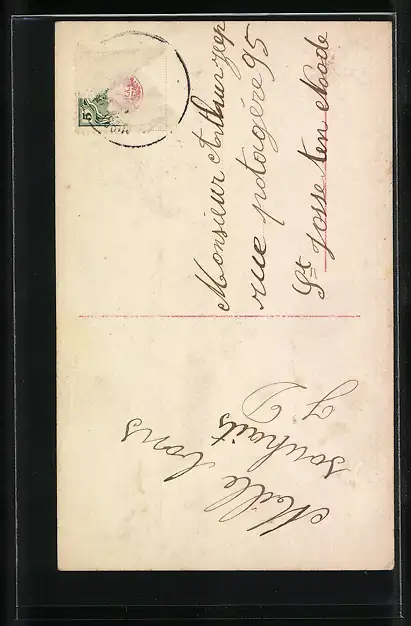 Mille bons
souhaits
G D
Monsieur Arthur Zeep
rue potagére 95
St Josse ten Noode
5